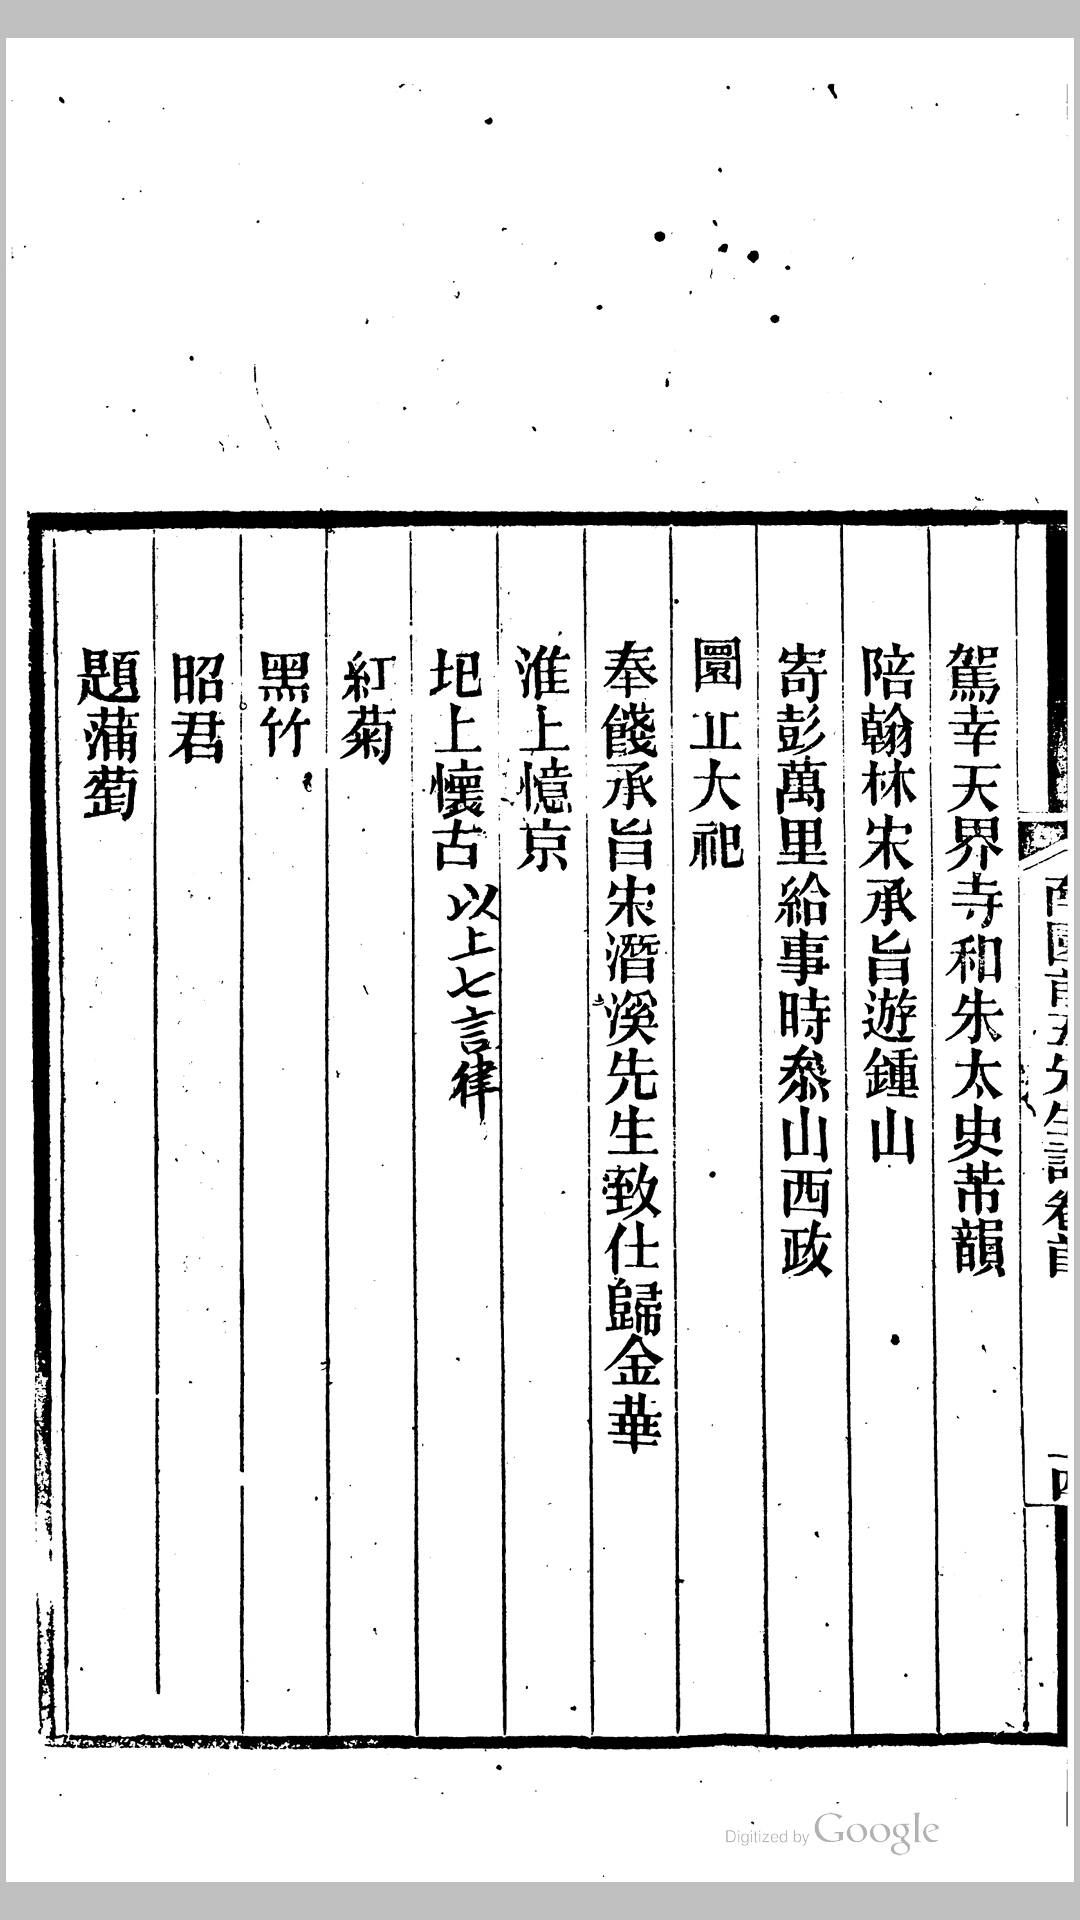 駕幸天界寺和朱太史芾韻
陪翰林宋承旨遊鍾山
寄彭萬里給事時叅山西政
圜丠大祀
奉餞承旨宋潛溪先生致仕歸金華
淮上憶京
圯上懷古 以上七言律
紅菊
黑竹
昭君
題蒲萄
南園前五先生詩卷首
四
Digitized by Google